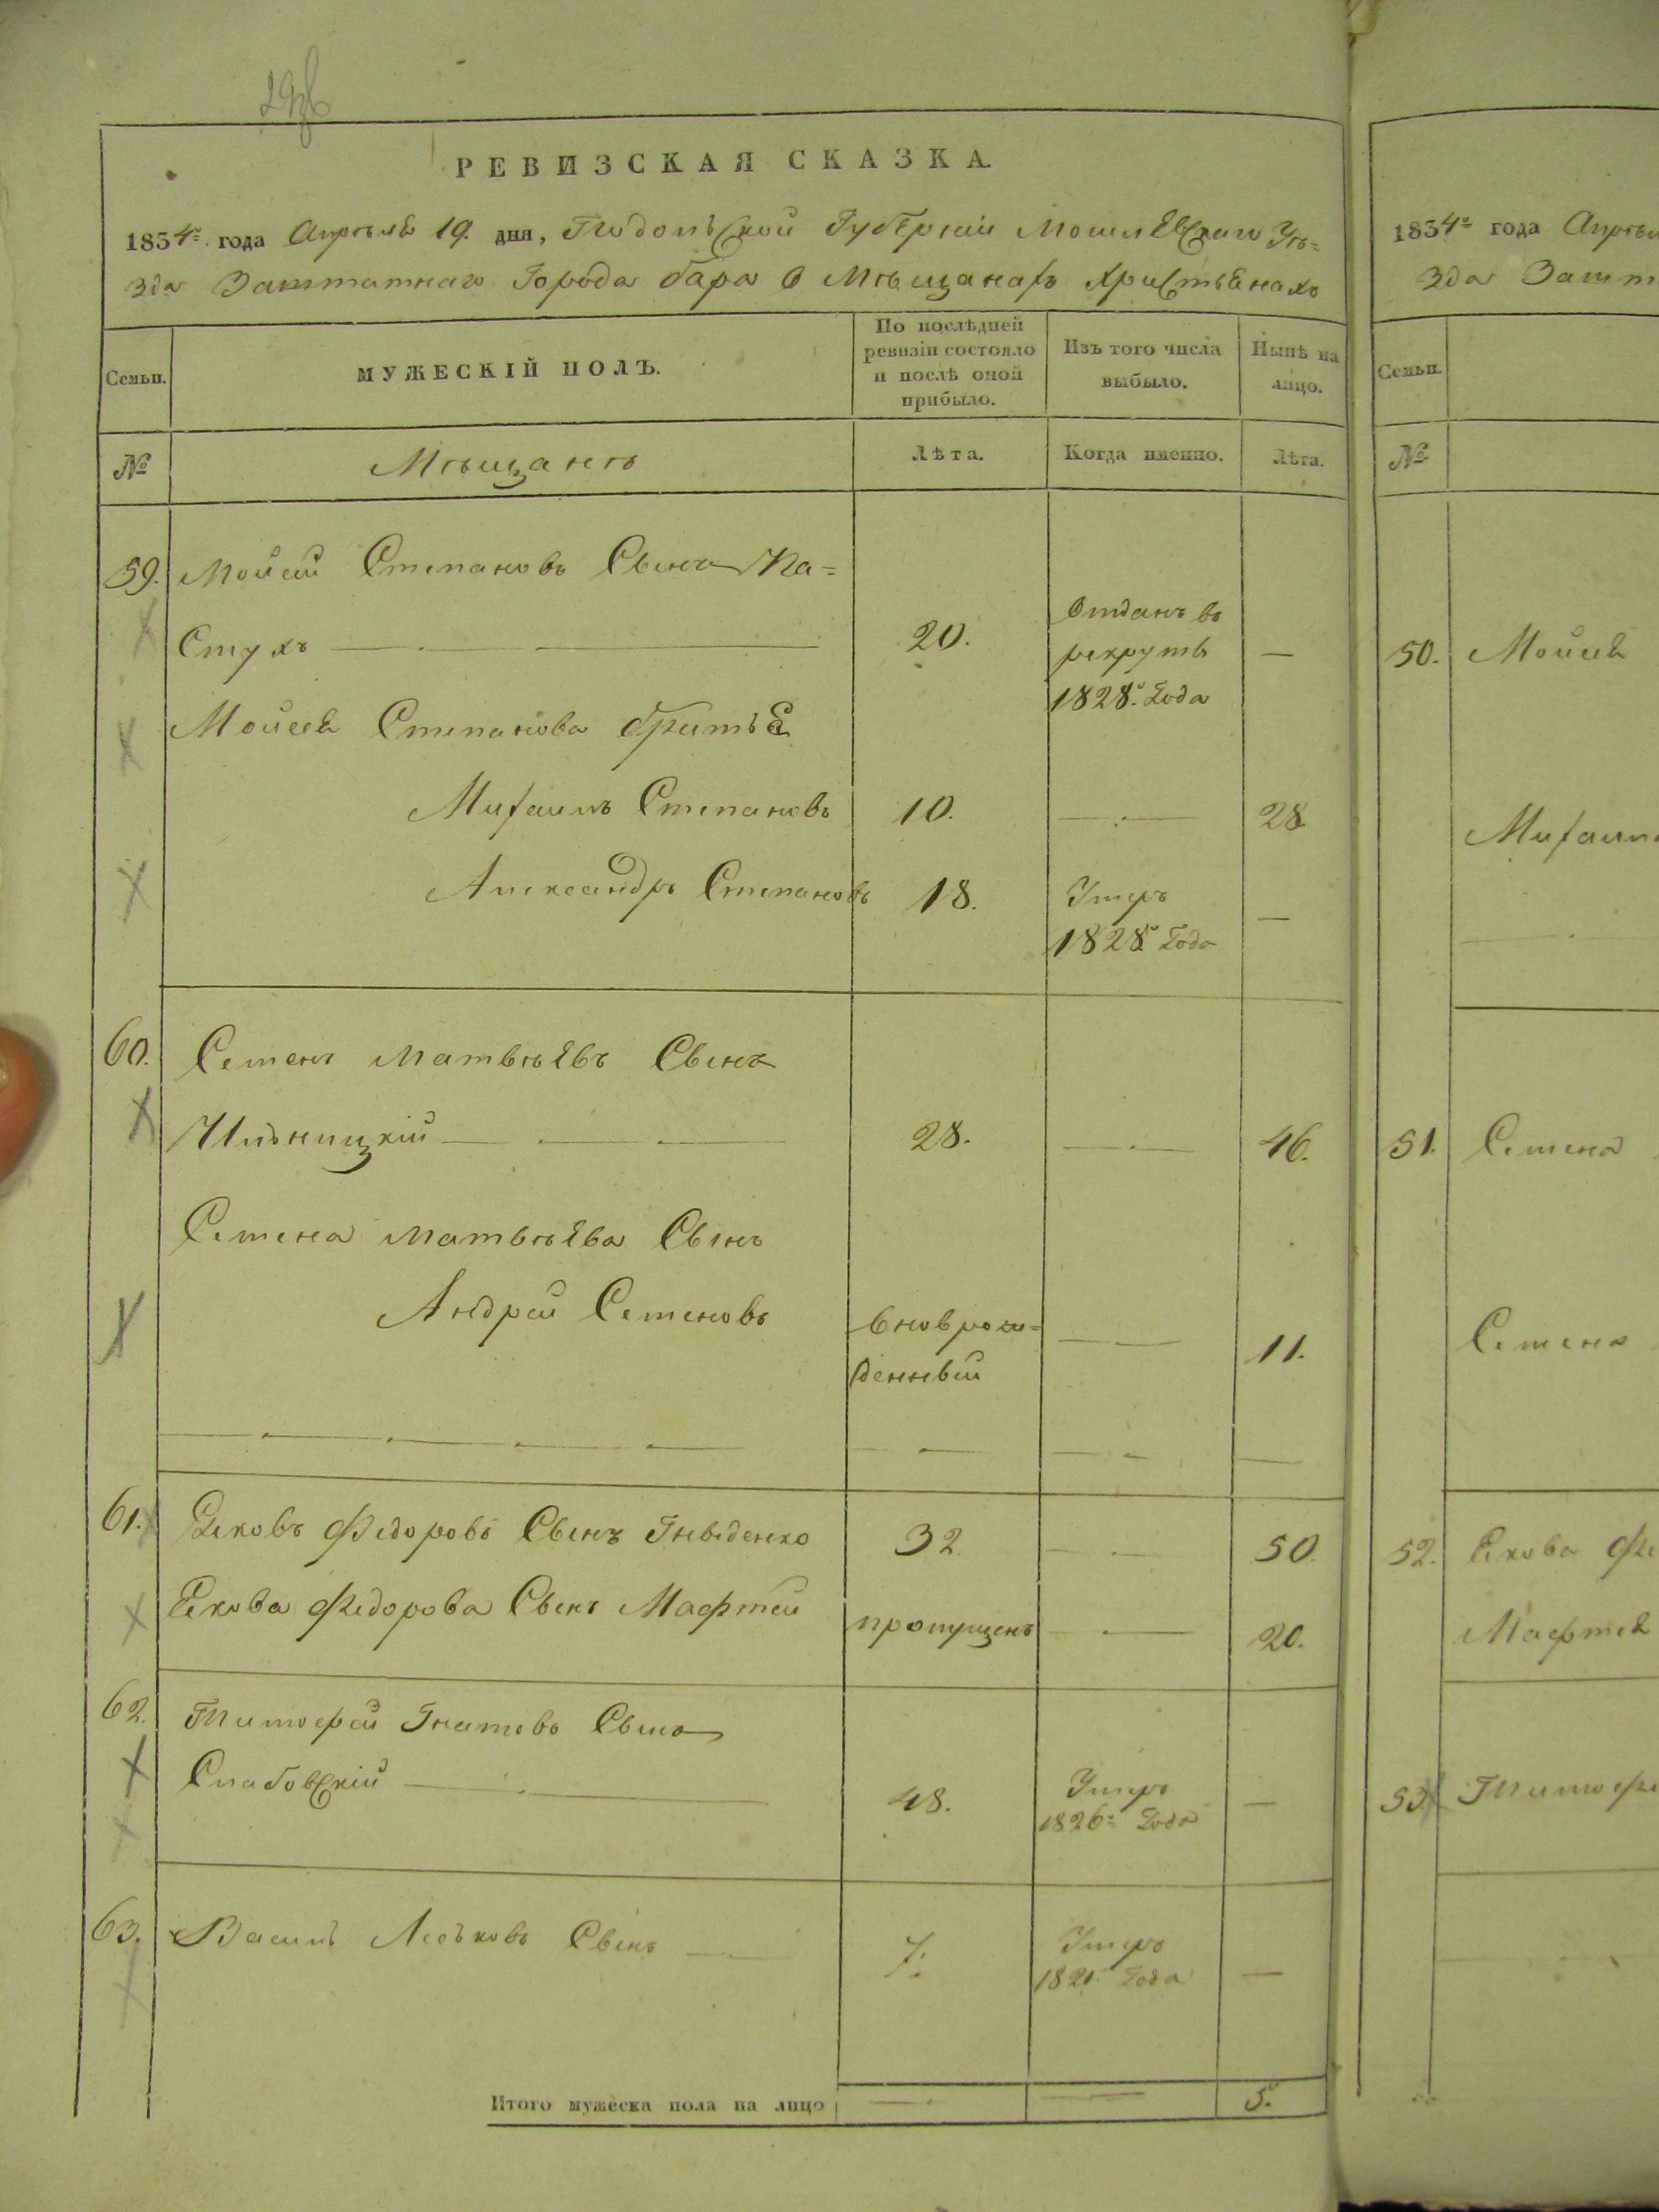 РЕВИЗСКАЯ СКАЗКА.
1834го года Апрѣля 19. дня, Подольской Губерніи Могилевскаго Уѣ=
зда Заштатнаго Города бара О Мѣщанахъ Христьянахъ
Семьи.
МУЖЕСКІЙ ПОЛЪ.
По послѣдней
ревизіи состояло
и послѣ оной
прибыло.
Изъ того числа
выбыло.
Нынѣ на
лицо.
№
Мѣщанѣ
Лѣта.
Когда именно.
Лѣта.
59. Мойсей Степановъ Сынъ Па=
стухъ 20. Отданъ въ
рекруты
1828го года —
Мойсея Степанова братья
Михаилъ Степановъ 10. — 28
Александръ Степановъ 18. Умеръ
1828го года —
60. Семенъ Матвѣевъ Сынъ
28. — 46.
Семена Матвѣева Сынъ
Андрей Семеновъ вноврож=
денный — 11.
61. Яковъ Федоровъ Сынъ Гныденко 32. — 50.
Якова Федорова Сынъ Мафтей пропущенъ — 20.
62. Тимофей Гнатовъ Сынъ
Слабовскій 48. Умеръ
1826го года —
63. Василь Сынъ — 7. Умеръ
1821го года —
Итого мужеска пола на лицо — — 5.
1834го года Апрѣл
зда Зашт
Семьи.
№
50. Мойсея
Михаил
51. Семена
Семена
52. Якова Фе
Мафтея
53. Тимофе